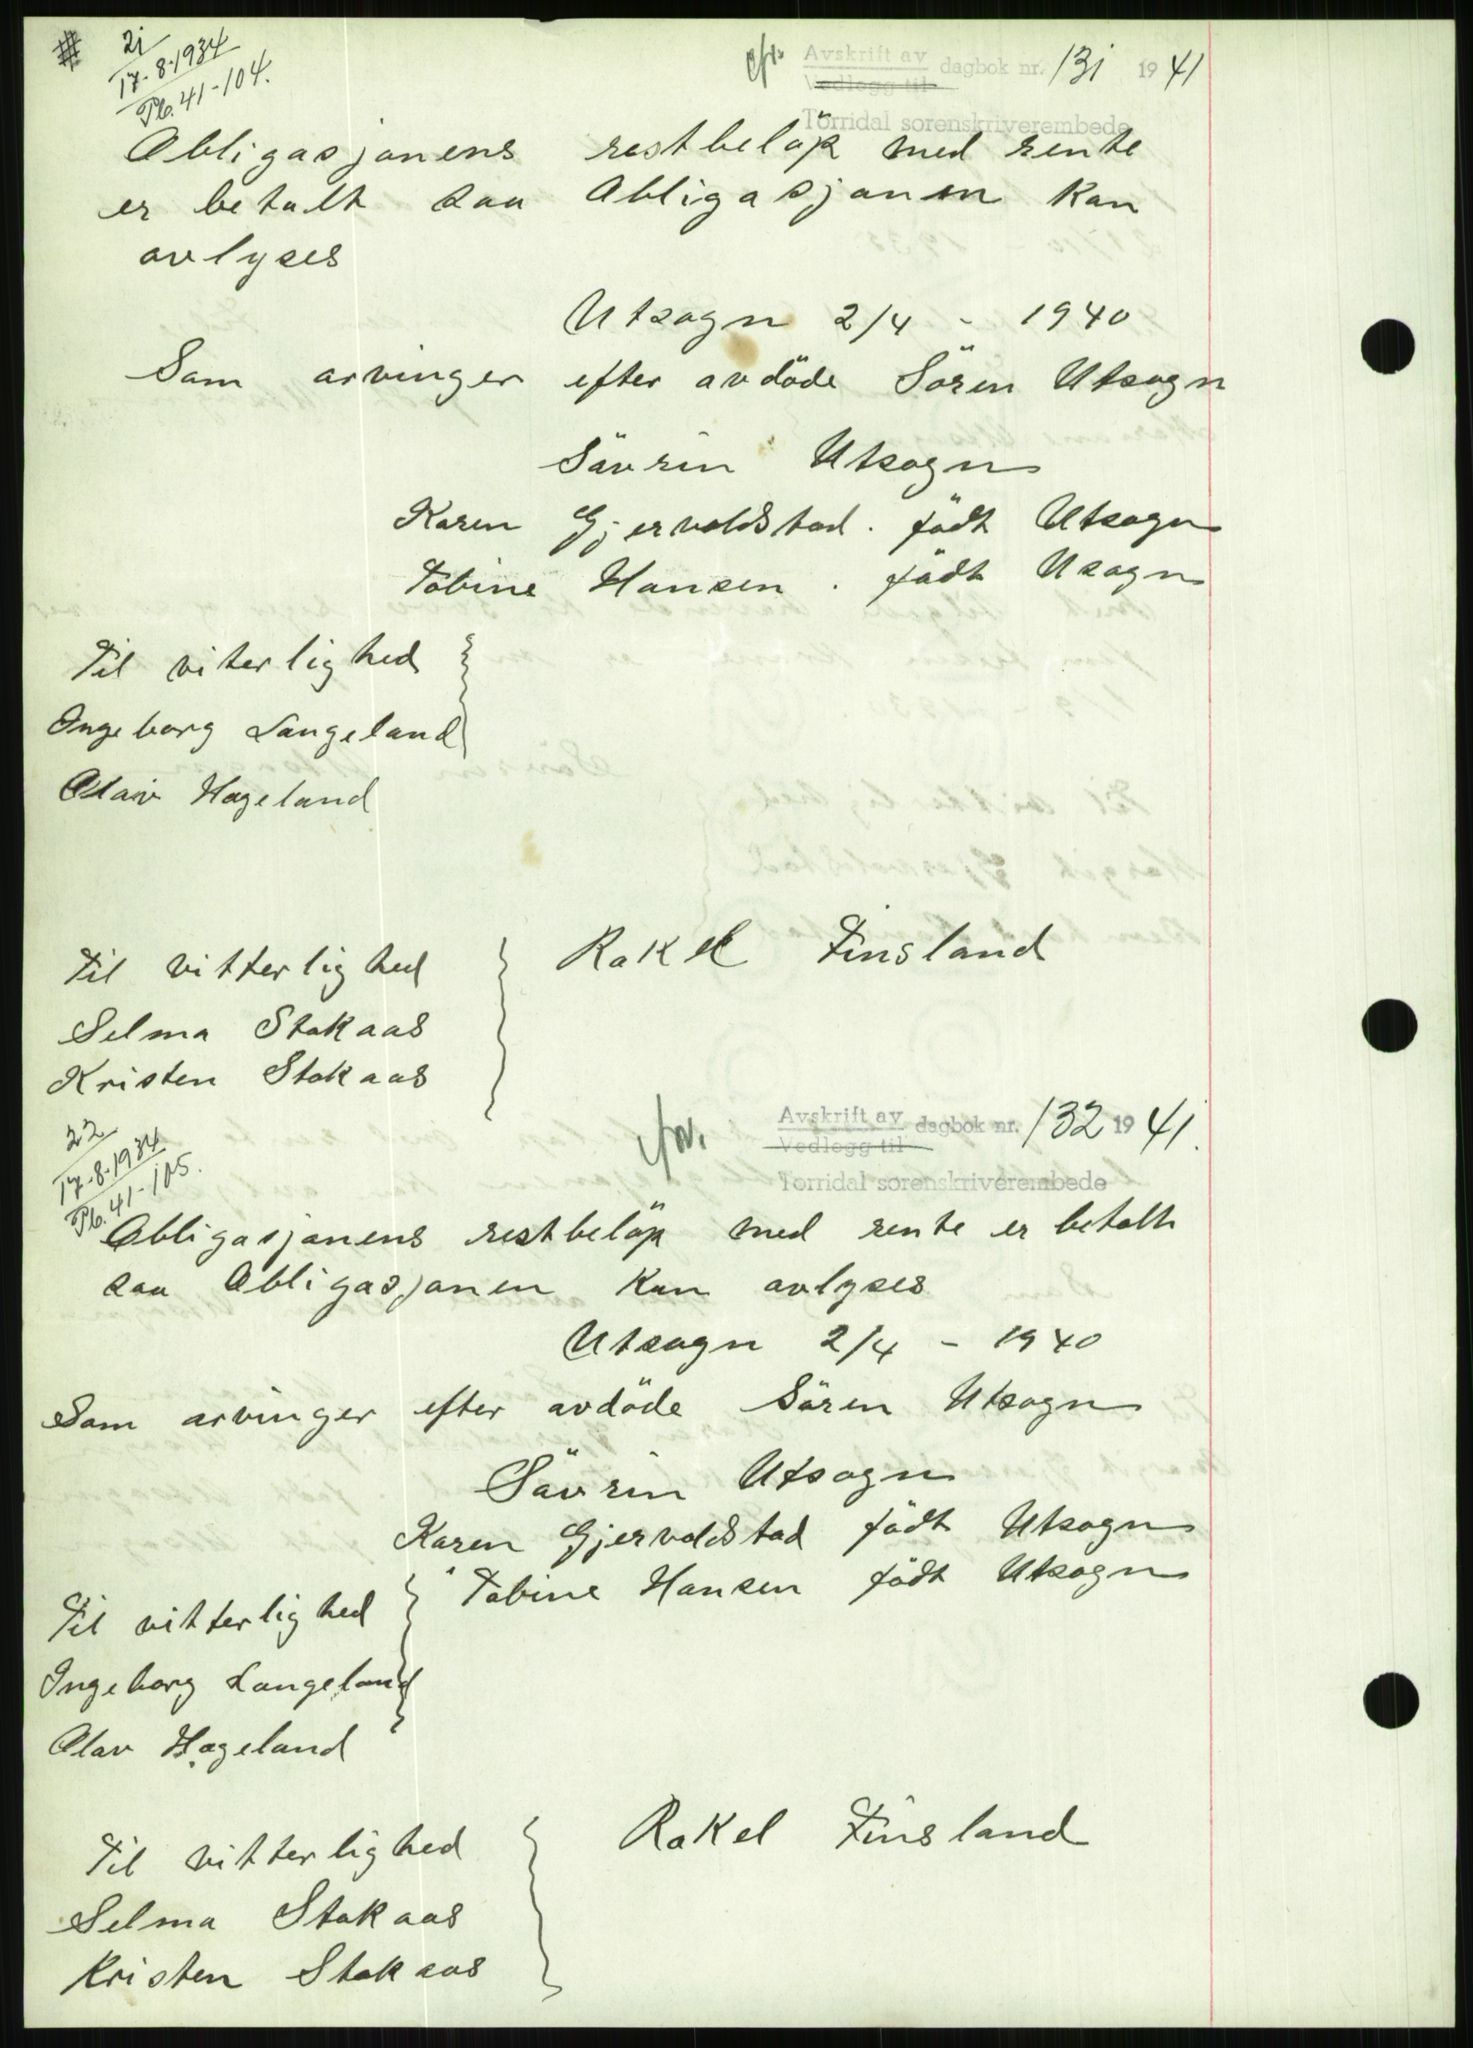 #
21
17-8-1934
Pb. 41-104.
Avskrift av dagbok nr. 131 1941
Vedlegg til
Torridal sorenskriverembede
Obligasjonens restbeløp med rente
er betalt saa Obligasjonen kan
avlyses
Utsogn 2/4 - 1940
Som arvinger efter avdöde Sören Utsogn
Sävrin Utsogn
Karen Gjervoldstad. födt Utsogn
Tobine Hansen. födt Usogn
Til viterlighed
Ingeborg Langeland
Olav Hageland
Til vitterlighed
Rakel Finsland
Selma Stokaas
Kristen Stokaas
22
17-8-1934
Pb. 41-105.
Avskrift av dagbok nr. 132 1941.
Vedlegg til
Torridal sorenskriverembede
Obligasjonens restbelöp med rente er betalt
saa Obligasjonen kan avlyses
Utsogn 2/4 - 1940
Som arvinger efter avdöde Sören Utsogn
Sävrin Utsogn
Karen Gjervoldstad födt Utsogn
Tobine Hansen födt Utsogn
Til vitterlighed
Ingeborg Langeland
Olav Hageland
Rakel Finsland
Til vitterlighed
Selma Stokaas
Kristen Stokaas